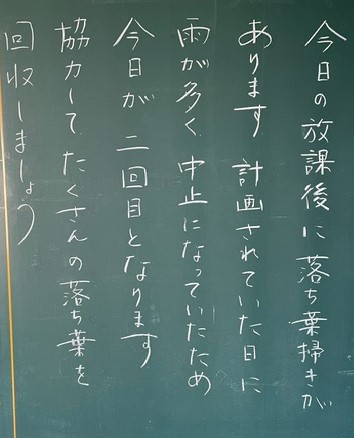 今日の放課後に落ち葉掃きが
あります 計画されていた日に
雨が多く 中止になっていたため
今日が 二回目となります
協力して たくさんの落ち葉を
回収しましょう